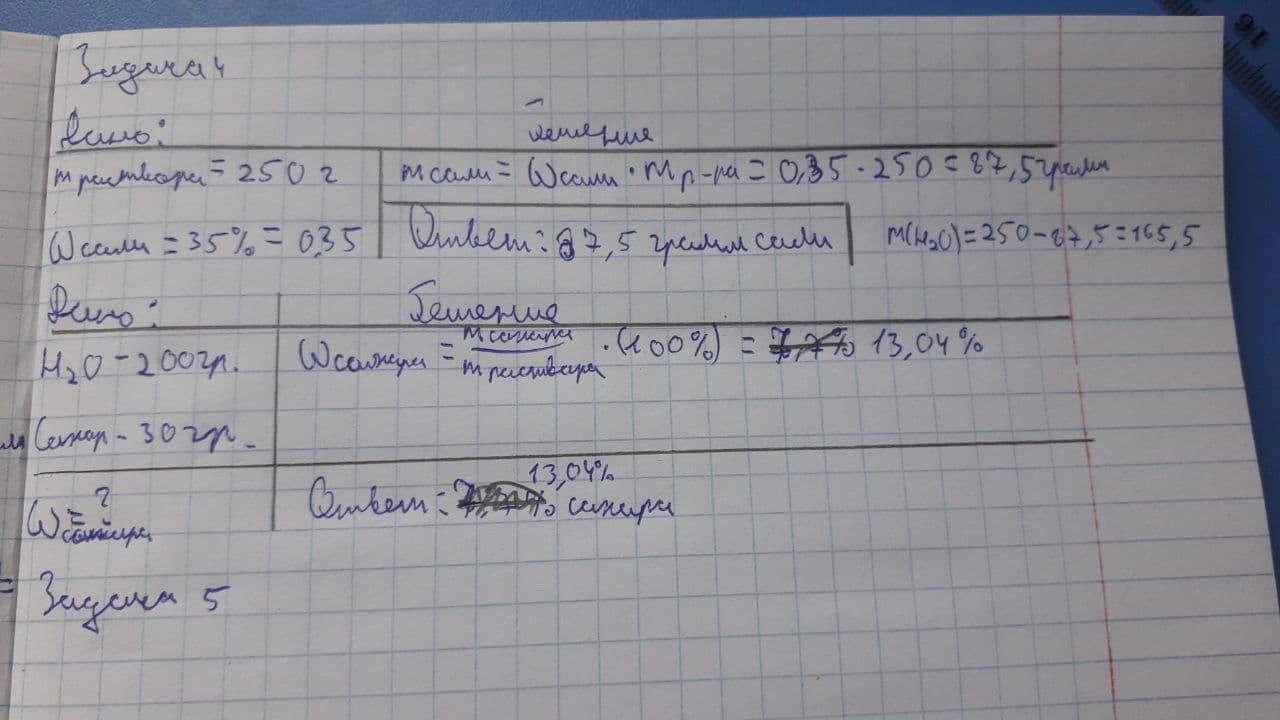 Задача 4
Дано: Решение
m раствора = 250 г m соли = ω соли · m р-ра = 0,35 · 250 = 87,5 грамм
ω соли = 35% = 0,35 Ответ: 87,5 грамм соли m(H₂O) = 250 - 87,5 = 165,5
Дано: Решение
H₂O - 200 гр. ω сахара = m сахара / m раствора · (100%) = 13,04%
Сахар - 30 гр.
ω сахара = ? Ответ: 13,04% сахара
Задача 5